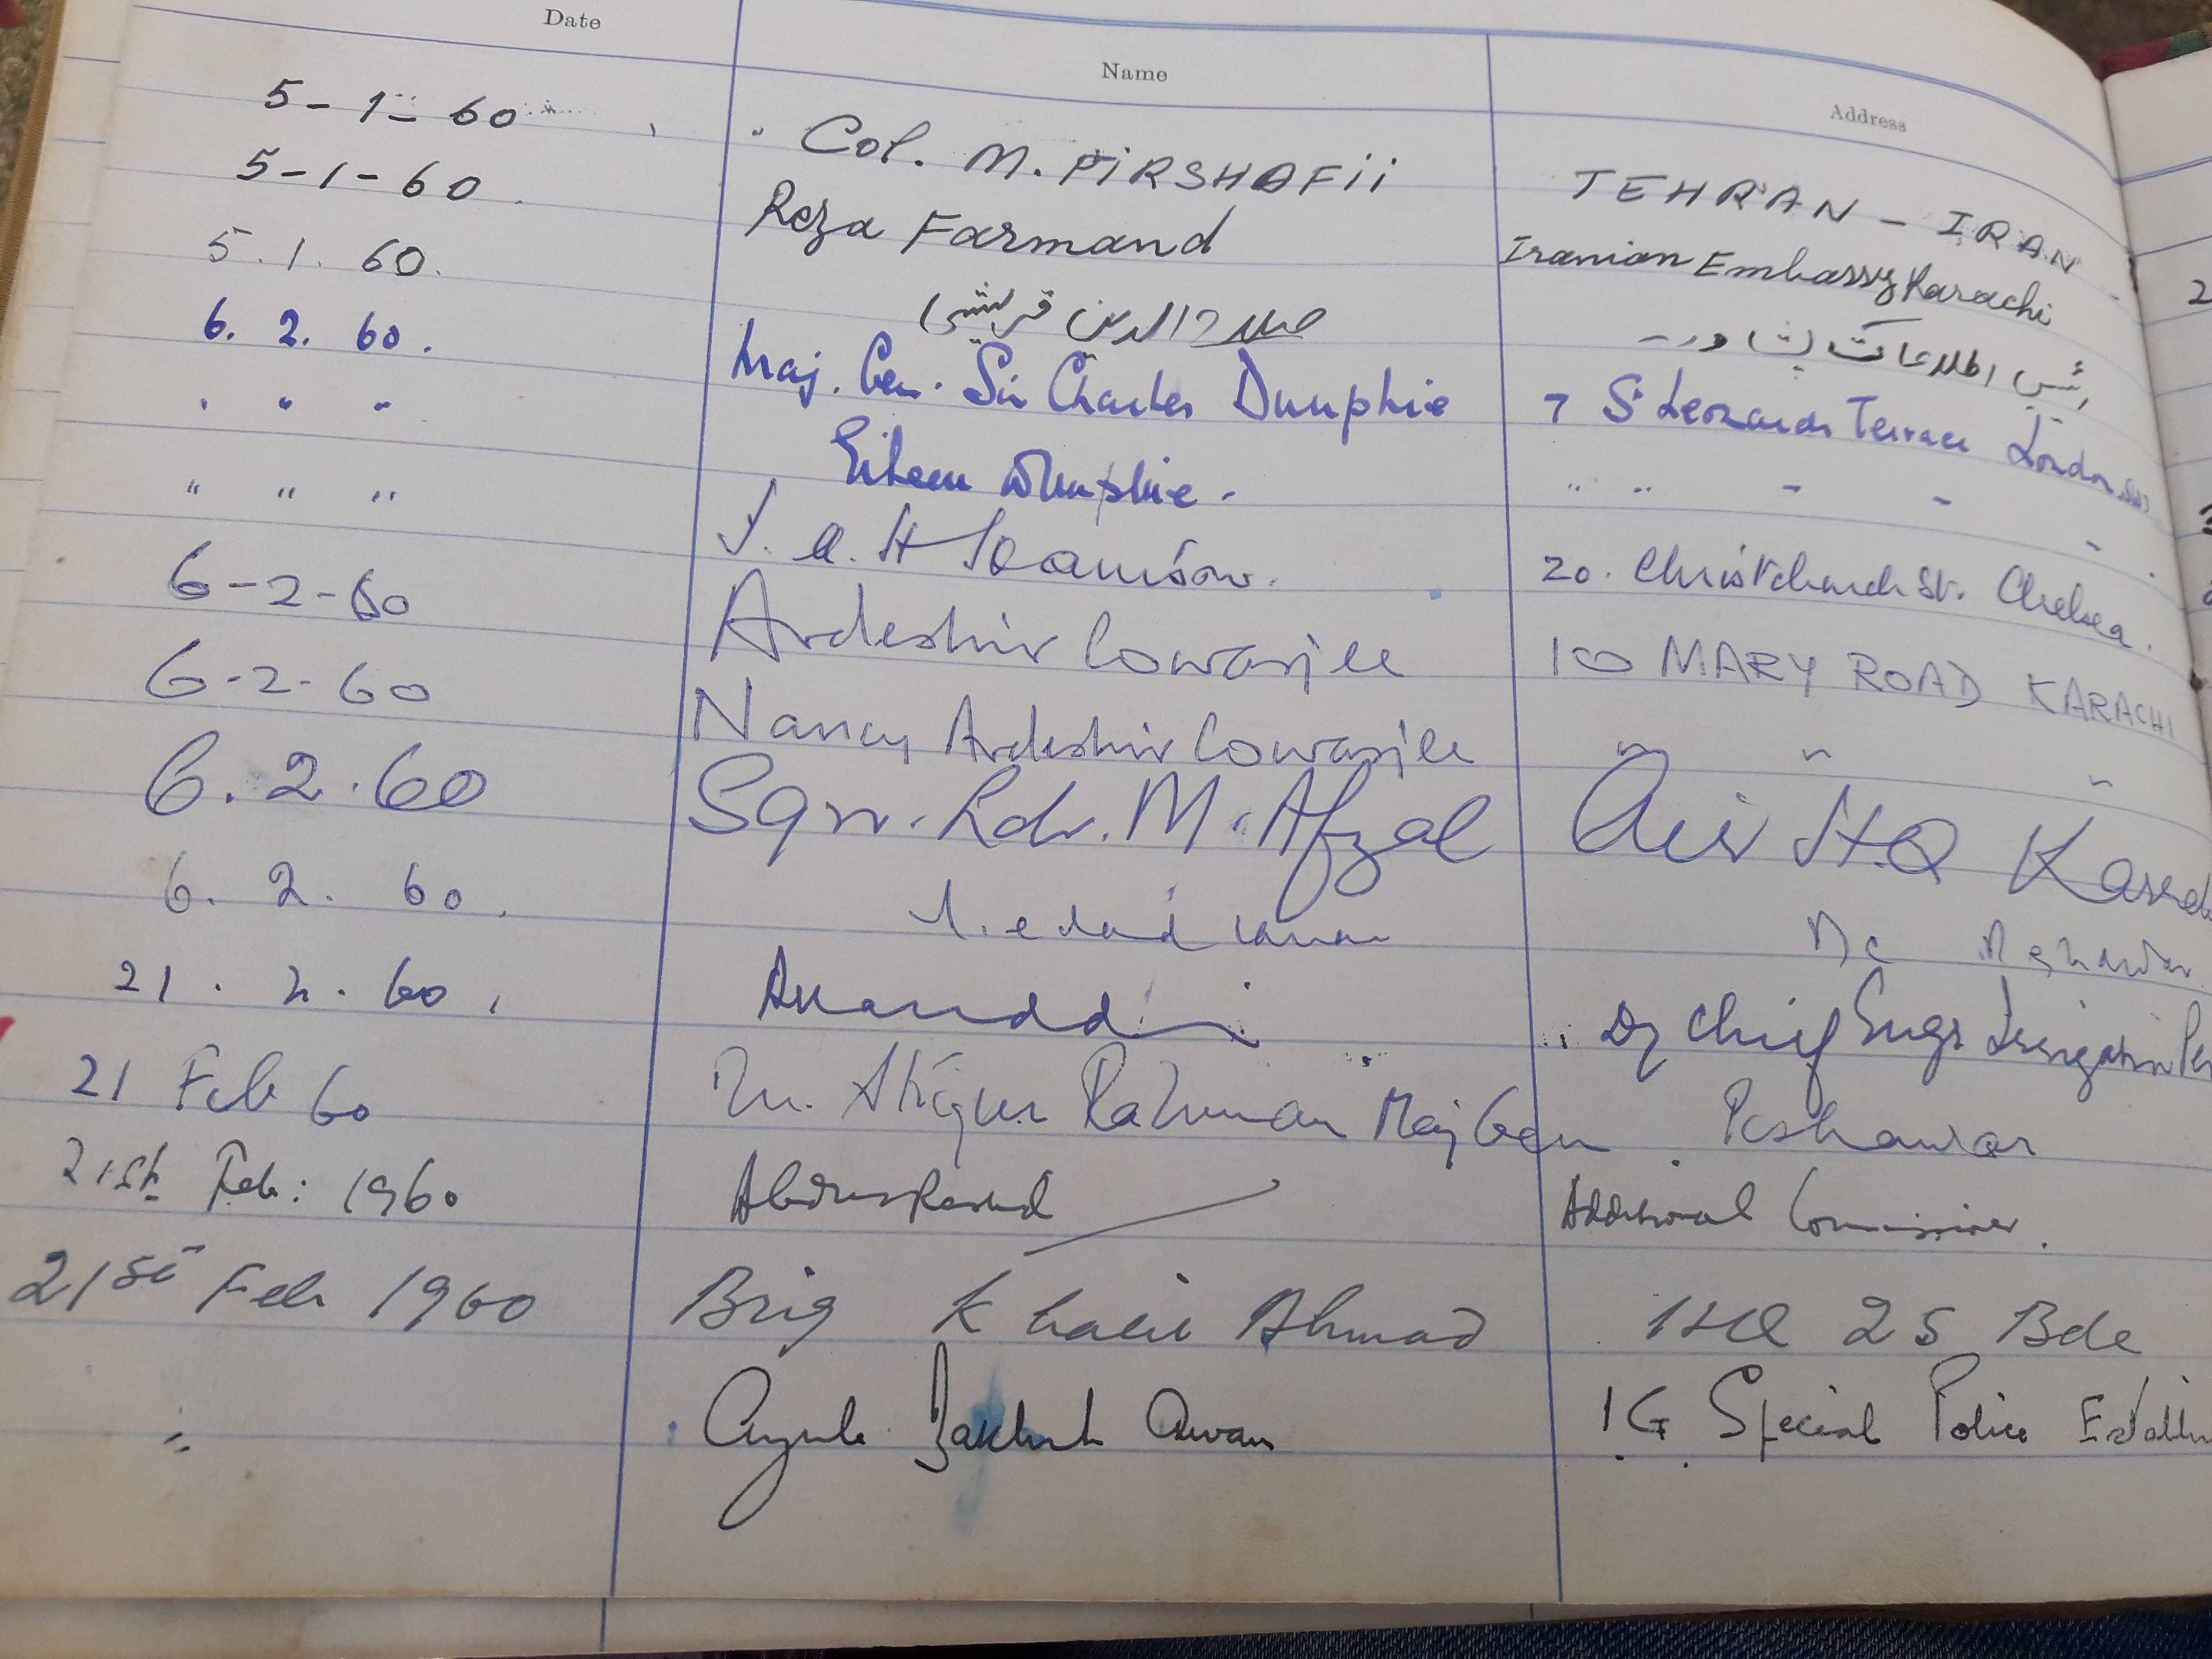 Date Name Address
5-1-60 Col. M. PIRSHAFII TEHRAN - IRAN
5-1-60 Reza Farmand Iranian Embassy Karachi
5.1.60. صدرالدین قریشی رئیس اطلاعات پشاور
6.2.60. Maj. Gen. Sir Charles Dunphie 7 St Leonards Terrace London SW3
" " " Eileen Dunphie. " " " " "
" " " J. A. H. 20. Christchurch St. Chelsea.
6-2-60 Ardeshir Cowasjee 10 MARY ROAD KARACHI
6-2-60 Nancy Ardeshir Cowasjee " " "
6.2.60 Sqn. Ldr. M. Afzal Air H.Q Karach
6.2.60. Peshawar
21.2.60. Dy Chief Engr Irrigation Pe
21 Feb 60 M. Atiqur Rahman Maj Gen Peshawar
21st Feb: 1960 Abdur Rashid Additional Commissioner.
21st Feb 1960 Brig Khalil Ahmad HQ 25 Bde
" Ayub Bakhsh Awan IG Special Police Establi